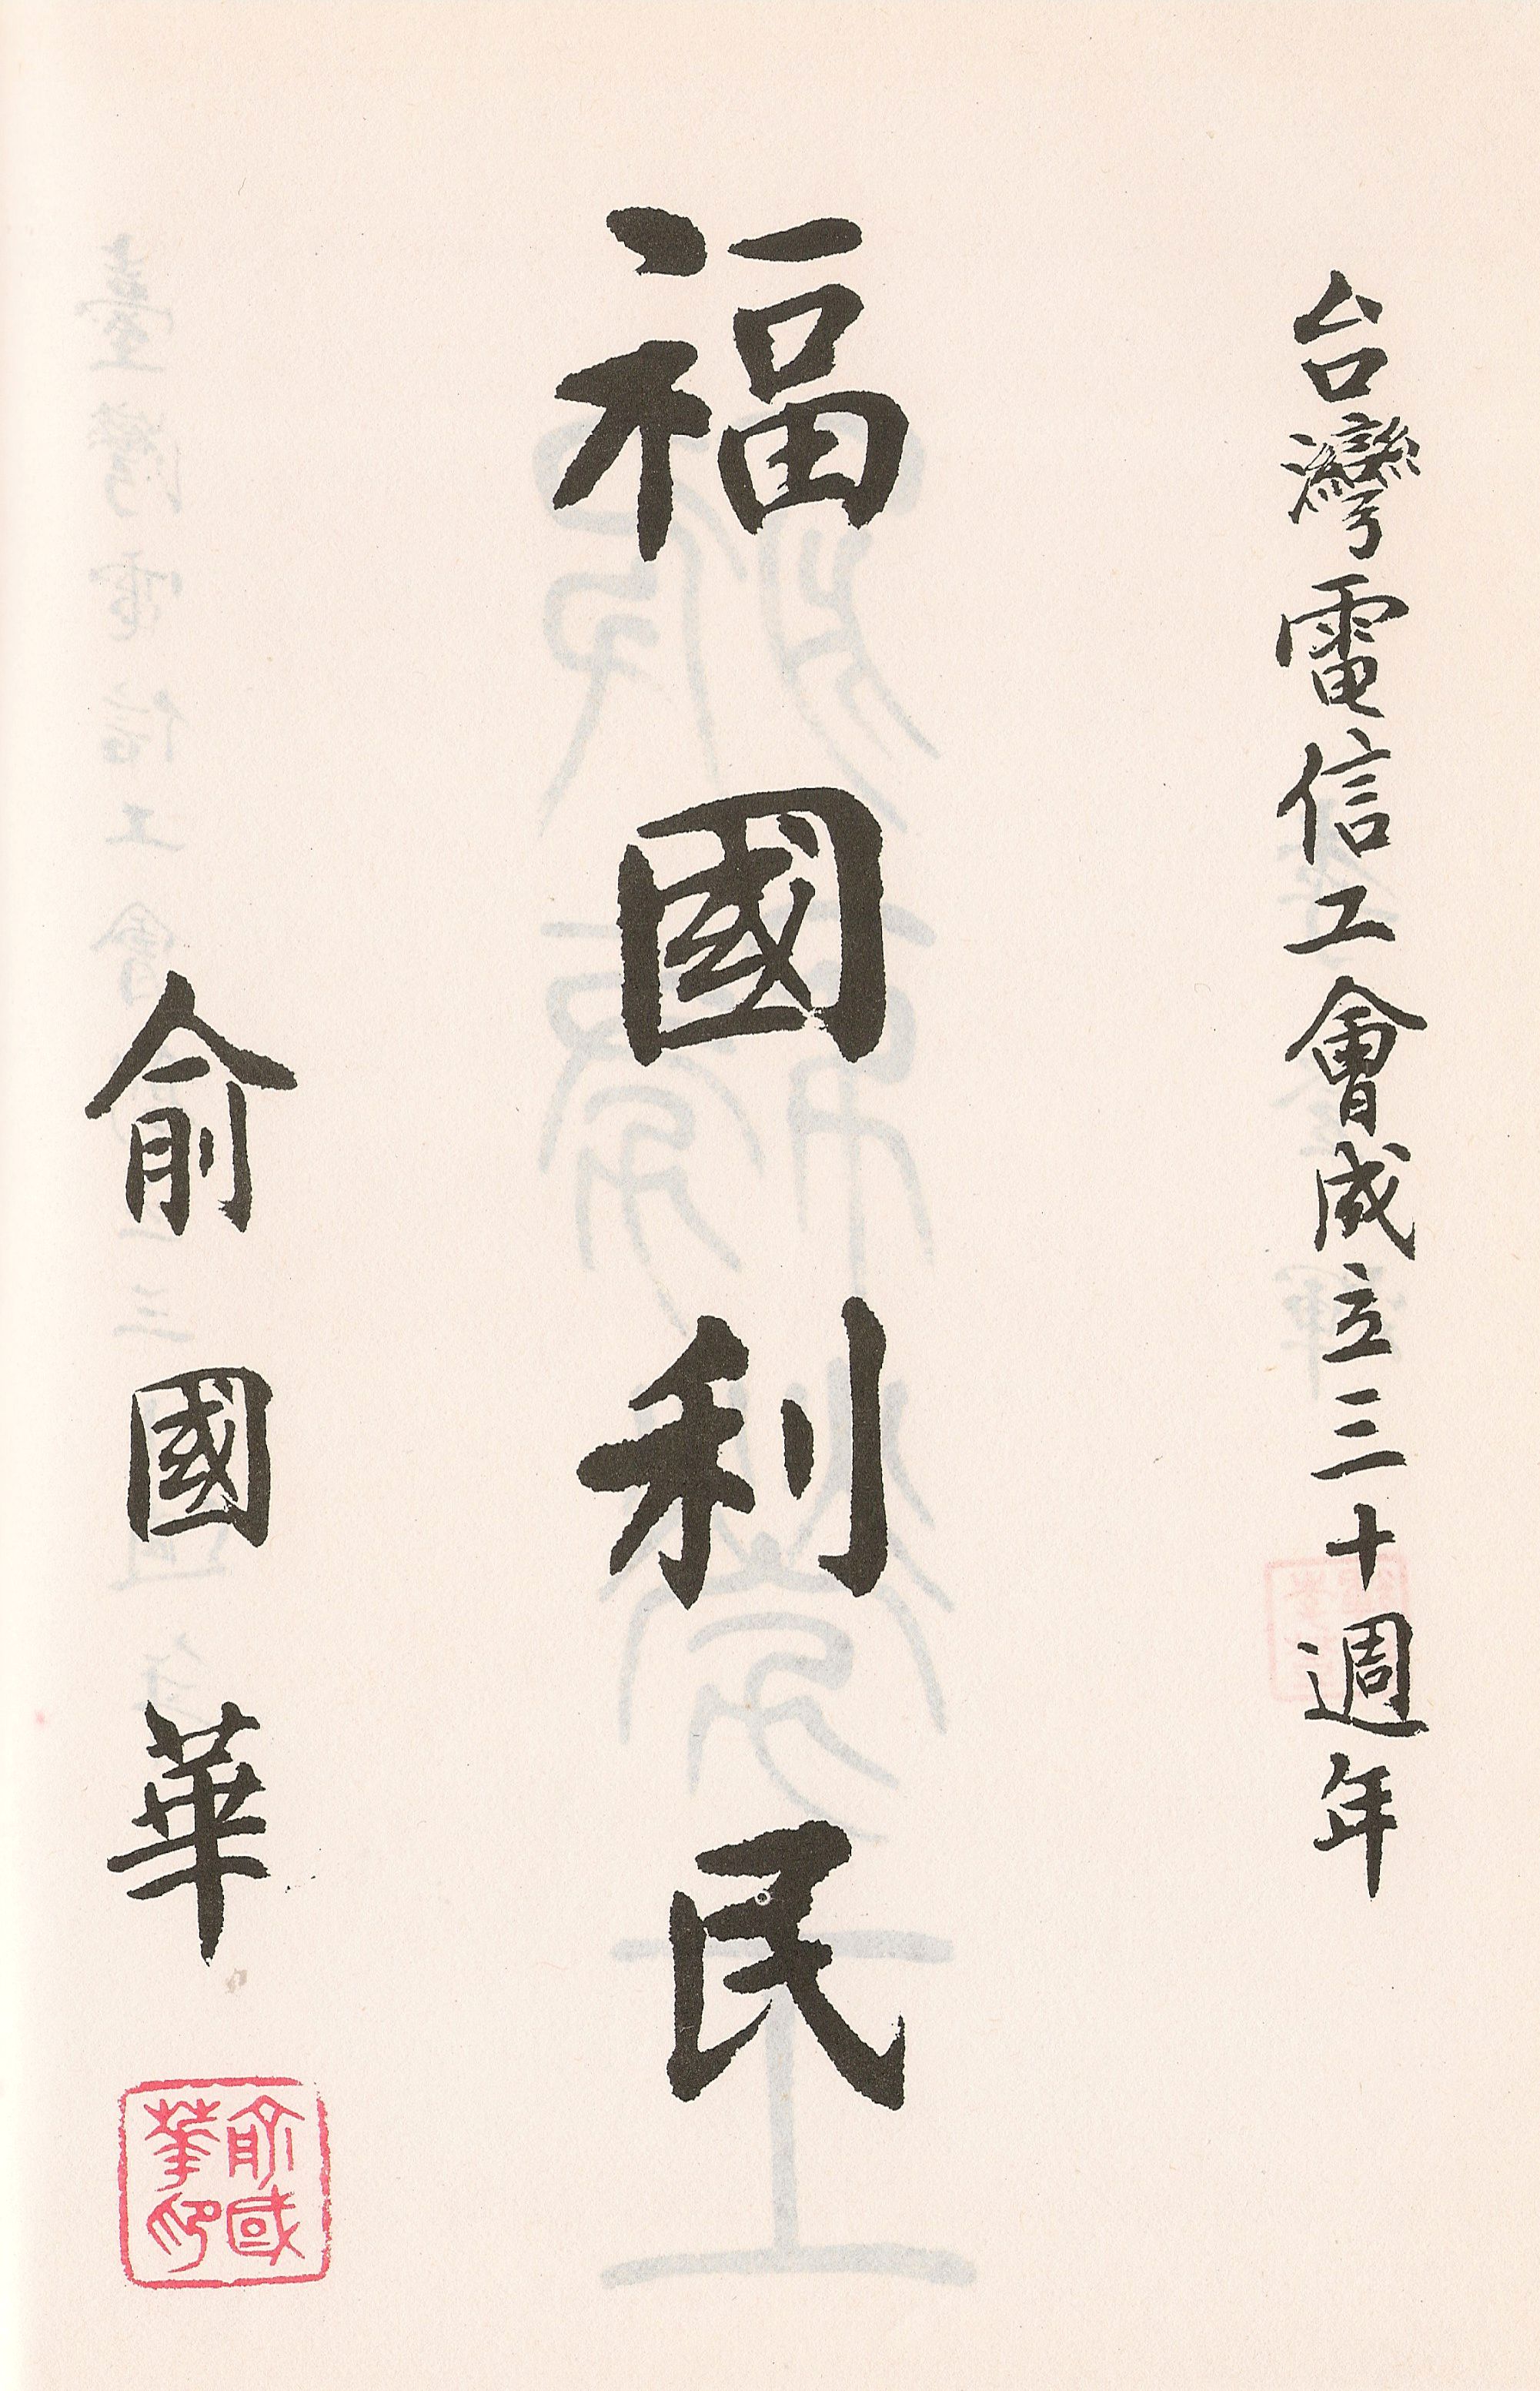 台灣電信工會成立三十週年
福國利民
俞國華
俞國華印